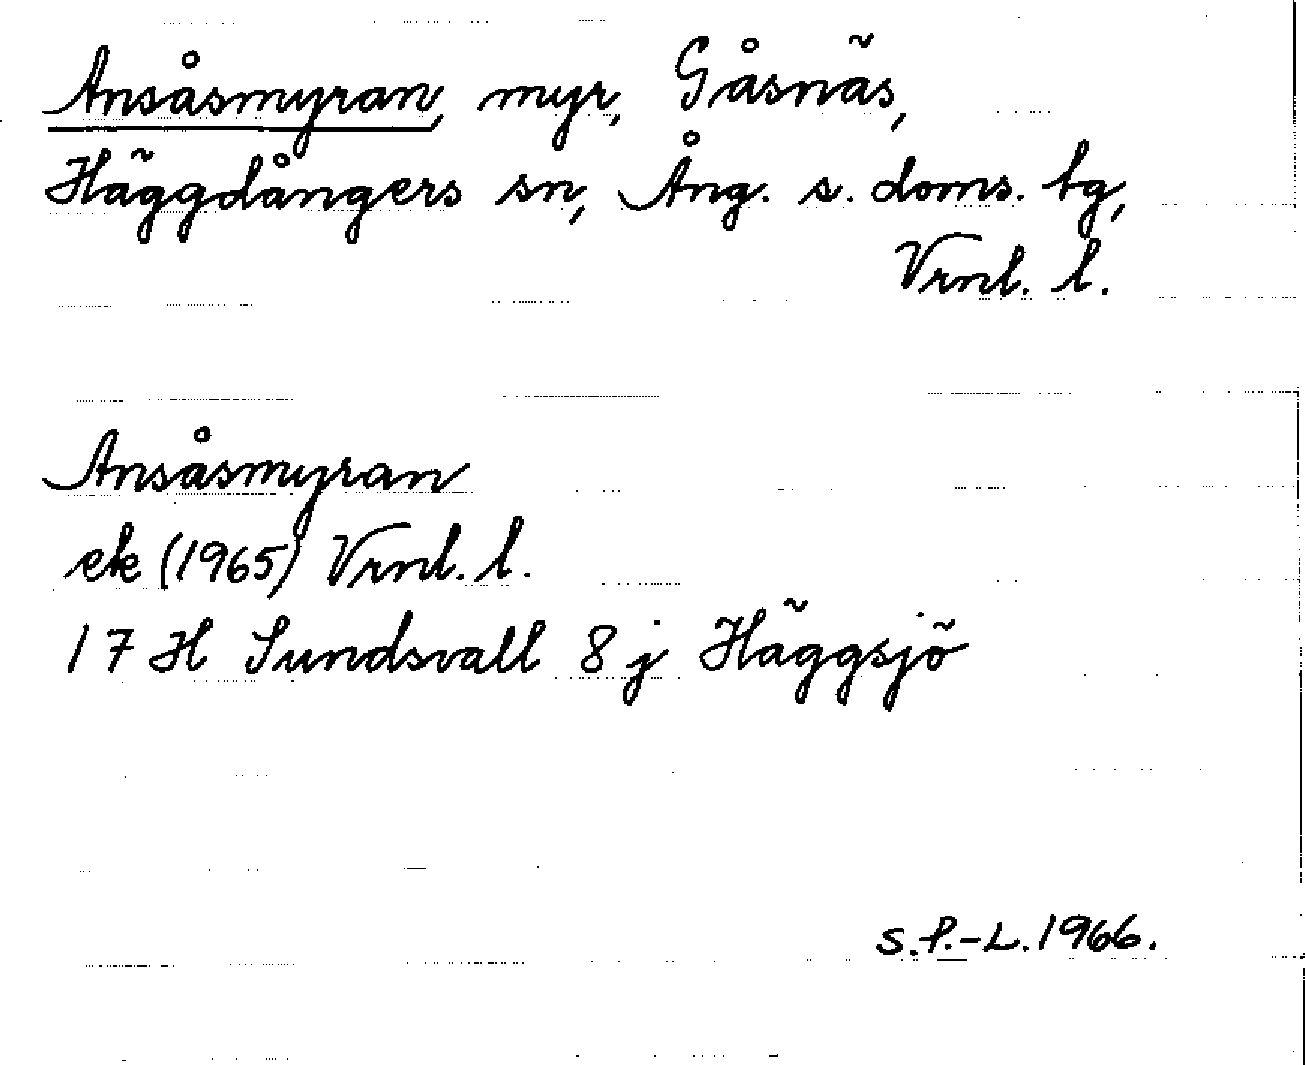 Ansåsmyran, myr, Gåsnäs,
Häggdångers sn, Ång. s. doms. tg,
Vrnl. l.
Ansåsmyran
ek (1965) Vrnl. l.
17 H Sundsvall 8 j Häggsjö
S.P.-L. 1966.